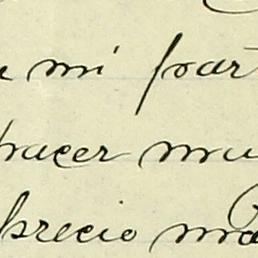 mi par
hacer mu
precio ma